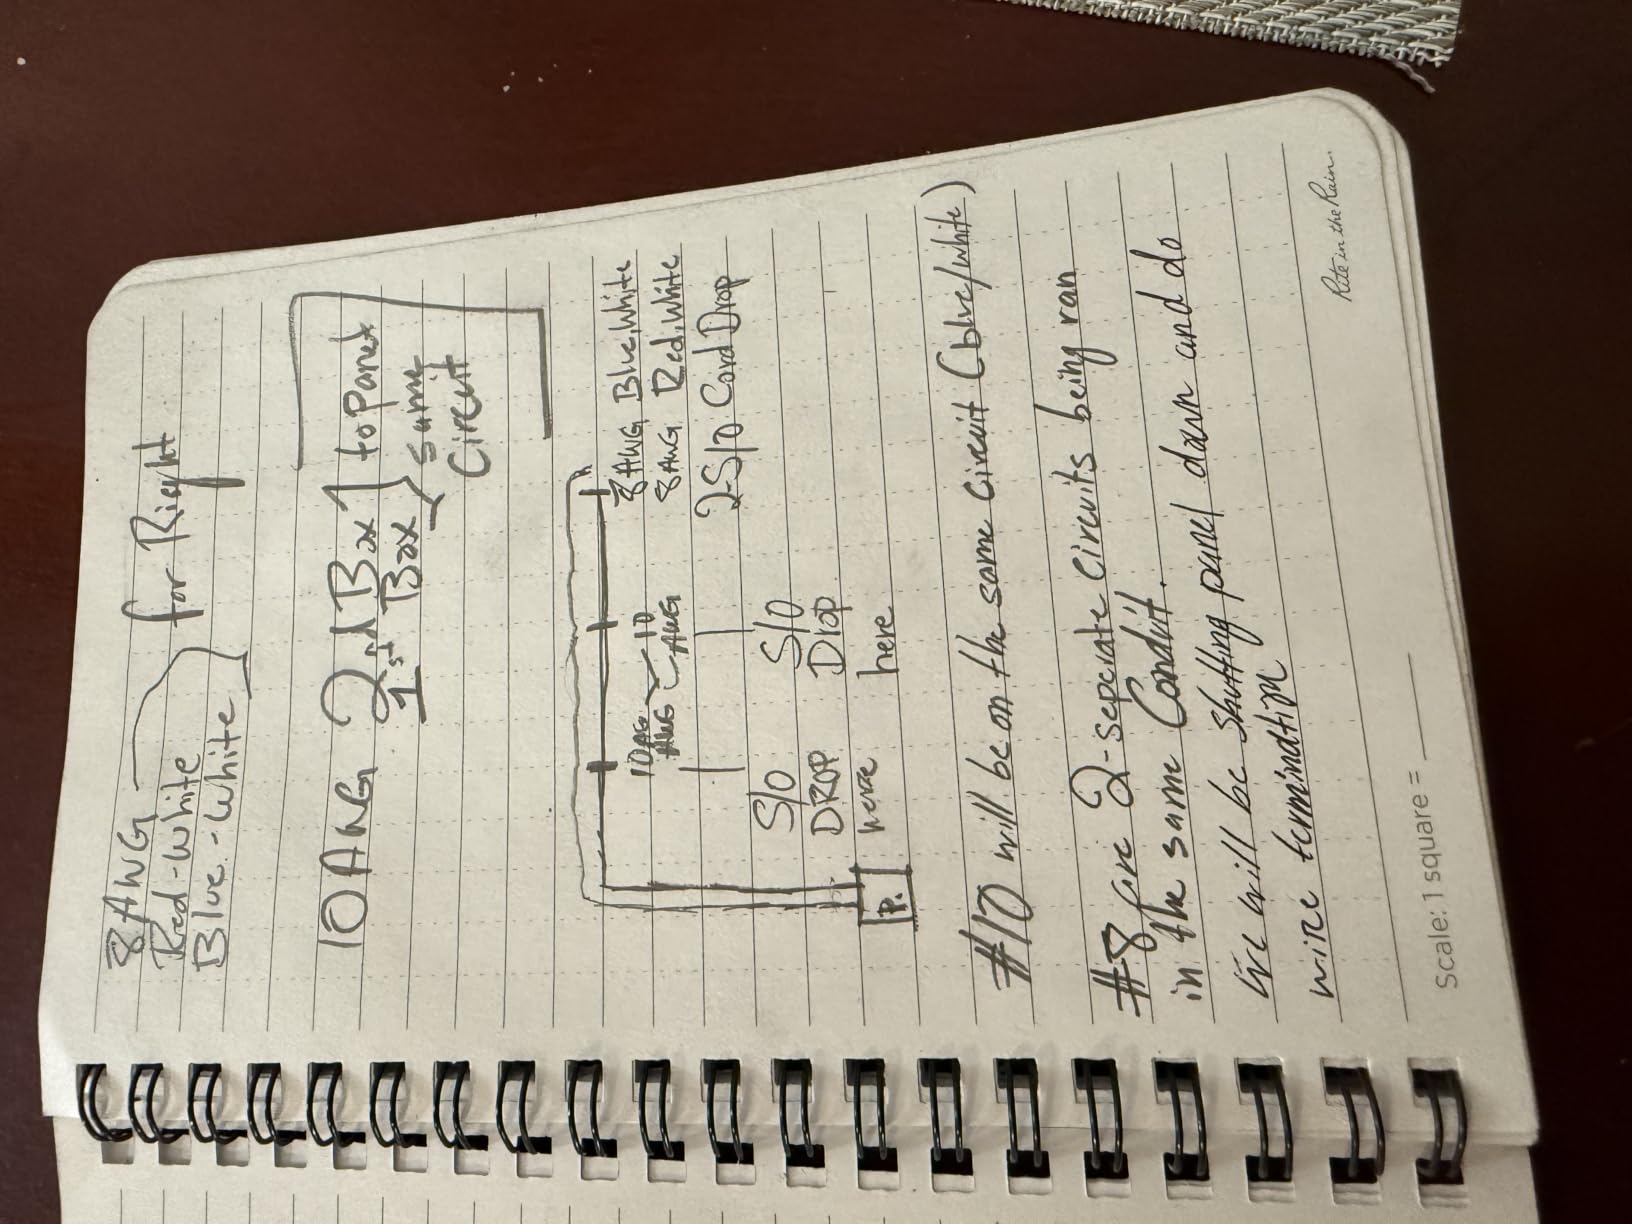 8 AWG
Red-White
Blue-White
for Right
10 AWG 2nd Box
1st Box
to Panel
same
Circuit
8 AWG Blue, White
8 AWG Red, White
2-S/O Cord Drop
10 AWG
10 AWG
S/O
DROP
here
S/O
Drop
here
P.
#10 will be on the same circuit (blue/white)
#8 are 2-seperate circuits being ran
in the same Conduit.
We will be shutting panel down and do
wire termination
Scale: 1 square =
Rite in the Rain